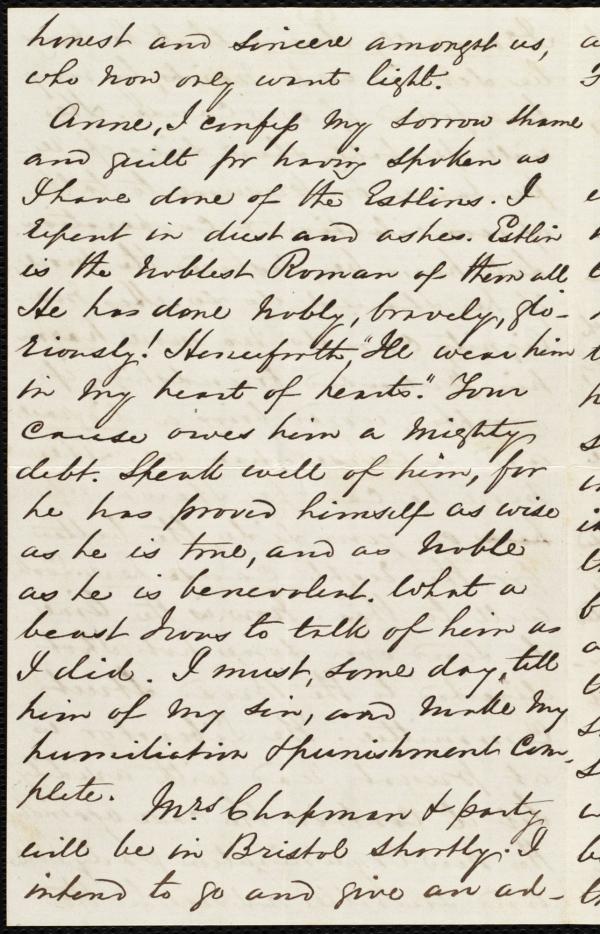 honest and sincere amongst us,
who now only want light.
Anne, I confess my sorrow shame
and guilt for having spoken as
I have done of the Estlins. I
repent in dust and ashes. Estlin
is the noblest Roman of them all
He has done nobly, bravely, glo-
riously! Henceforth, "I'll wear him
in my heart of hearts." Your
cause owes him a mighty
debt. Speak well of him, for
he has proved himself as wise
as he is true, and as noble
as he is benevolent. What a
beast I was to talk of him as
I did. I must, some day, tell
him of my sin, and make my
humiliation & punishment com-
plete. Mrs Chapman & party
will be in Bristol shortly. I
intend to go and give an ad-